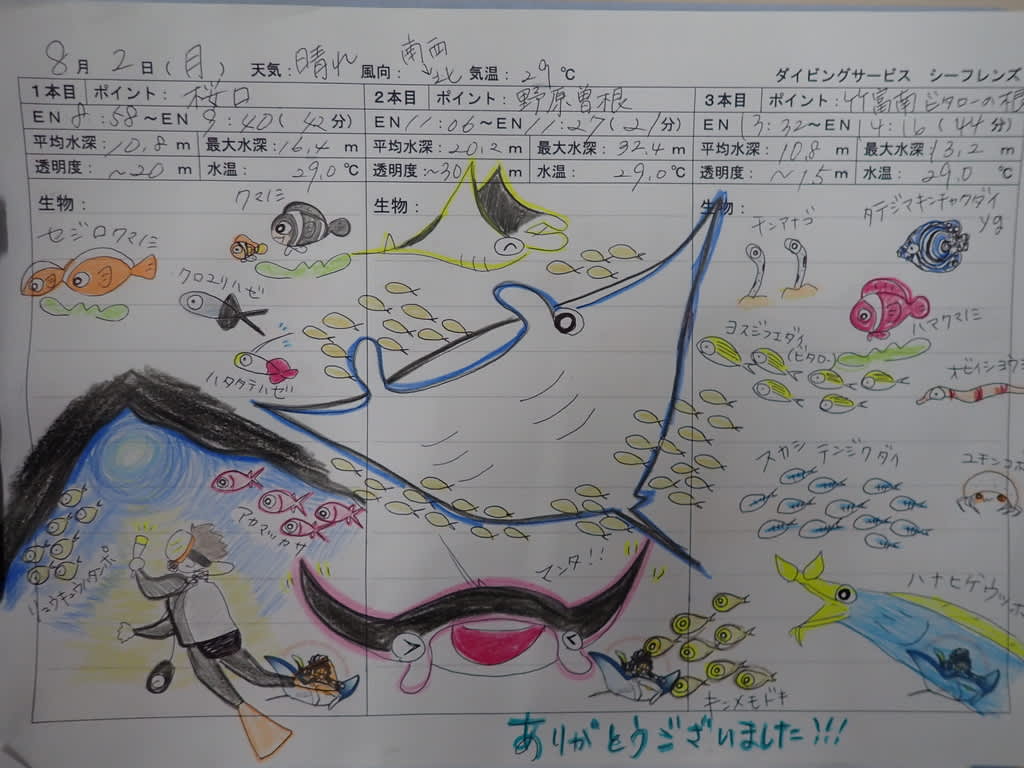 8月 2日(月) 天気:晴れ 風向:南西→北 気温:29℃
ダイビングサービス シーフレンズ
1本目 ポイント: 桜口
EN 8:58～EN 9:40(42分)
平均水深:10.8m 最大水深:16.4m
透明度:～20m 水温:29.0℃
生物:
クマノミ
セジロクマノミ
クロユリハゼ
ハタタテハゼ
アカマツカサ
リュウキュウハタンポ
2本目 ポイント: 野原曽根
EN 11:06～EN 11:27(21分)
平均水深:20.2m 最大水深:32.4m
透明度:～30m 水温:29.0℃
生物:
マンタ!!
3本目 ポイント:竹富南ビタローの根
EN 13:32～EN 14:16(44分)
平均水深:10.8m 最大水深:13.2m
透明度:～15m 水温:29.0℃
生物:
チンアナゴ
タテジマキンチャクダイ
yg
ハマクマノミ
ヨスジフエダイ
(ビタロー)
オビイシヨウジ
スカシテンジクダイ
ハナヒゲウツボ
キンメモドキ
ありがとうございました!!!